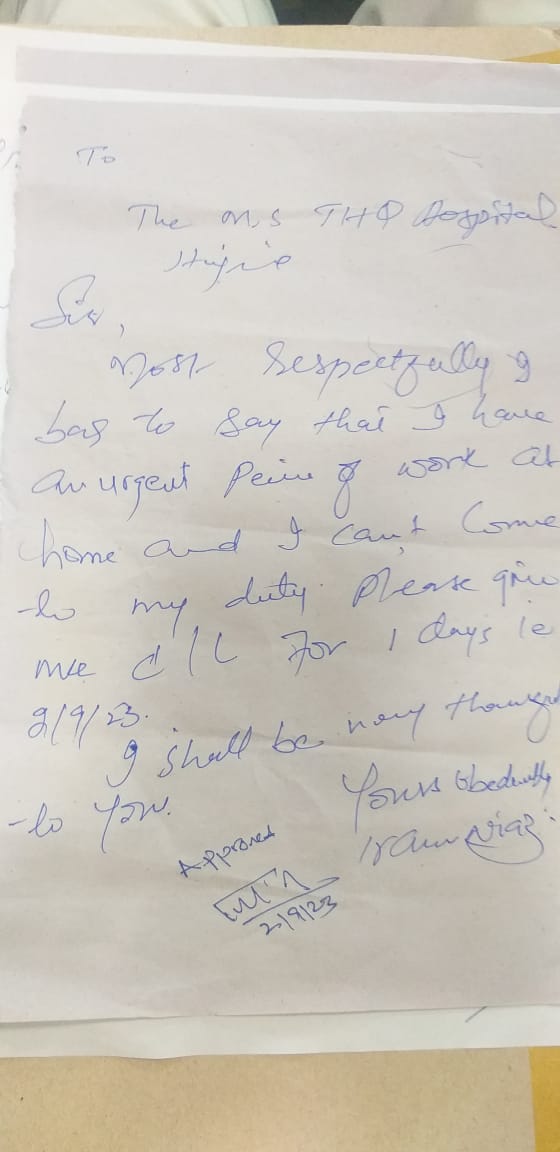 To
The M.S THQ Hospital
Sir,
Most Respectfully I
beg to say that I have
an urgent Peice of work at
home and I can't Come
to my duty. Please give
me C/L For 1 days ie
2/9/23.
I shall be very
to You.
Yours Obediently
Approved
2/9/23